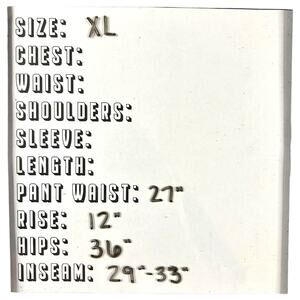 SIZE: XL
CHEST:
WAIST:
SHOULDERS:
SLEEVE:
LENGTH:
PANT WAIST: 27"
RISE: 12"
HIPS: 36"
INSEAM: 29"-33"